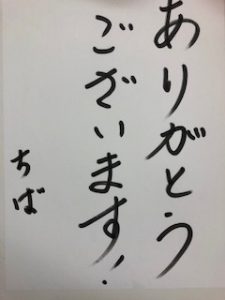 ありがとう
ございます!
ちば